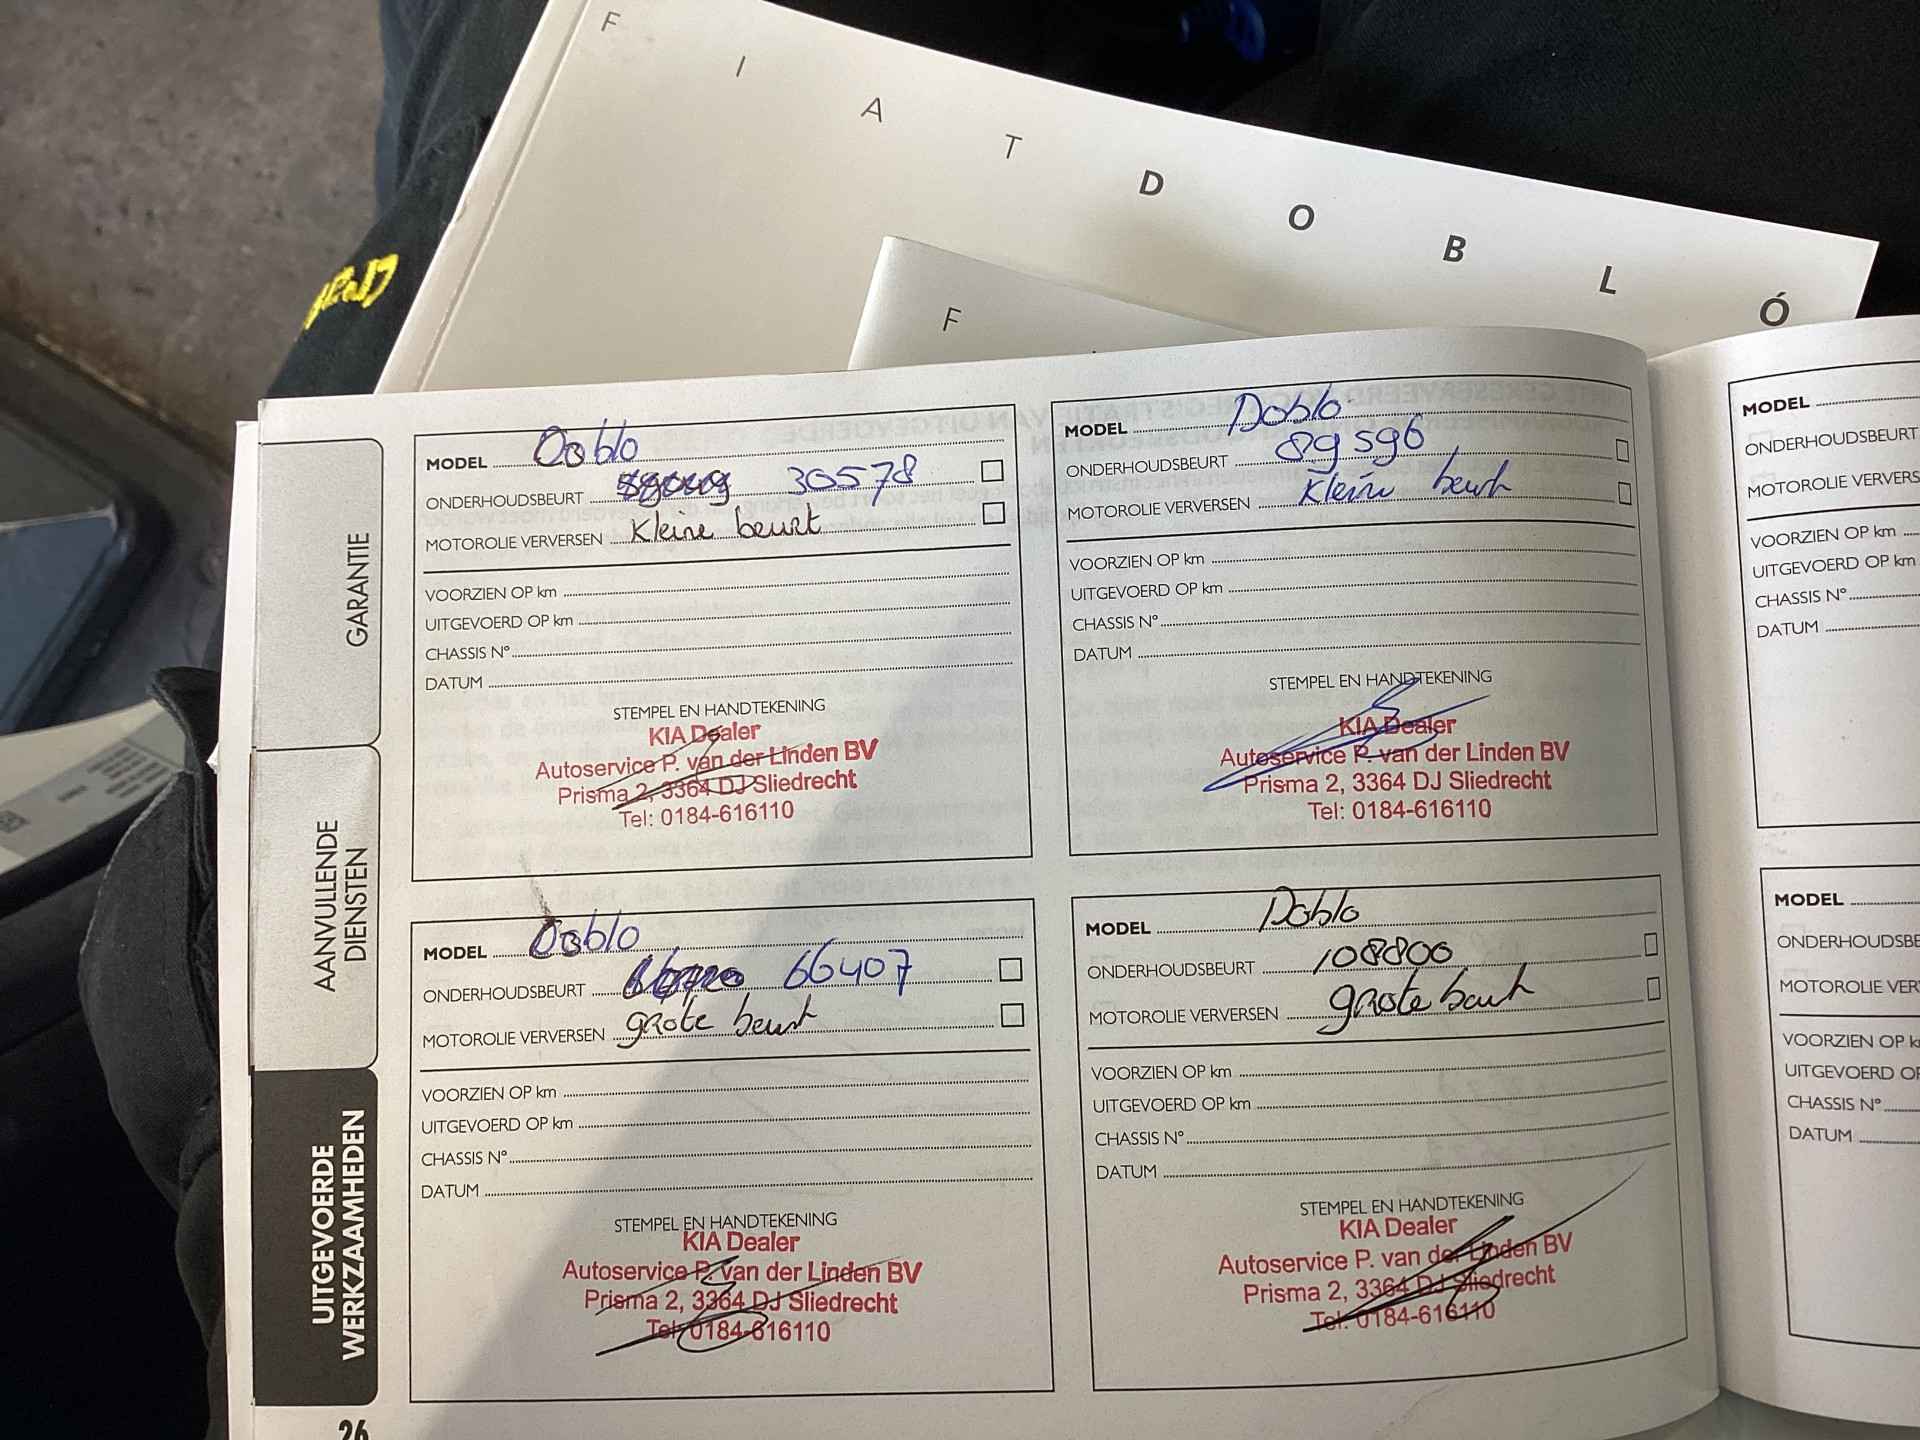 F I A T D O B L Ó
F
GARANTIE
AANVULLENDE
DIENSTEN
UITGEVOERDE
WERKZAAMHEDEN
26
MODEL Doblo
ONDERHOUDSBEURT 30578
MOTOROLIE VERVERSEN kleine beurt
VOORZIEN OP km
UITGEVOERD OP km
CHASSIS N°
DATUM
STEMPEL EN HANDTEKENING
KIA Dealer
Autoservice P. van der Linden BV
Prisma 2, 3364 DJ Sliedrecht
Tel: 0184-616110
MODEL Doblo
ONDERHOUDSBEURT 66407
MOTOROLIE VERVERSEN grote beurt
VOORZIEN OP km
UITGEVOERD OP km
CHASSIS N°
DATUM
STEMPEL EN HANDTEKENING
KIA Dealer
Autoservice P. van der Linden BV
Prisma 2, 3364 DJ Sliedrecht
Tel: 0184-616110
MODEL Doblo
ONDERHOUDSBEURT 89596
MOTOROLIE VERVERSEN kleine beurt
VOORZIEN OP km
UITGEVOERD OP km
CHASSIS N°
DATUM
STEMPEL EN HANDTEKENING
KIA Dealer
Autoservice P. van der Linden BV
Prisma 2, 3364 DJ Sliedrecht
Tel: 0184-616110
MODEL Doblo
ONDERHOUDSBEURT 108800
MOTOROLIE VERVERSEN grote beurt
VOORZIEN OP km
UITGEVOERD OP km
CHASSIS N°
DATUM
STEMPEL EN HANDTEKENING
KIA Dealer
Autoservice P. van der Linden BV
Prisma 2, 3364 DJ Sliedrecht
Tel: 0184-616110
MODEL
ONDERHOUDSBEURT
MOTOROLIE VERVERS
VOORZIEN OP km
UITGEVOERD OP km
CHASSIS N°
DATUM
MODEL
ONDERHOUDSBE
MOTOROLIE VER
VOORZIEN OP k
UITGEVOERD OP
CHASSIS N°
DATUM